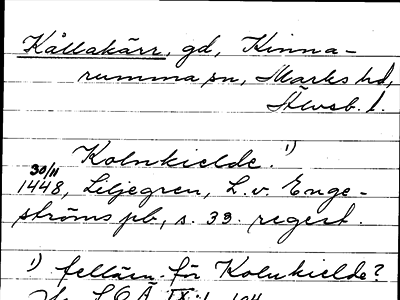 Kållakärr, gd, Kinna-
rumma sn, Marks hd,
Älvsb. l.
Kolnkielde. 1)
30/11
1448, Liljegren, L. v. Enge-
ströms pb, s. 33. regest.
1) felläsn. för Kolukielde?